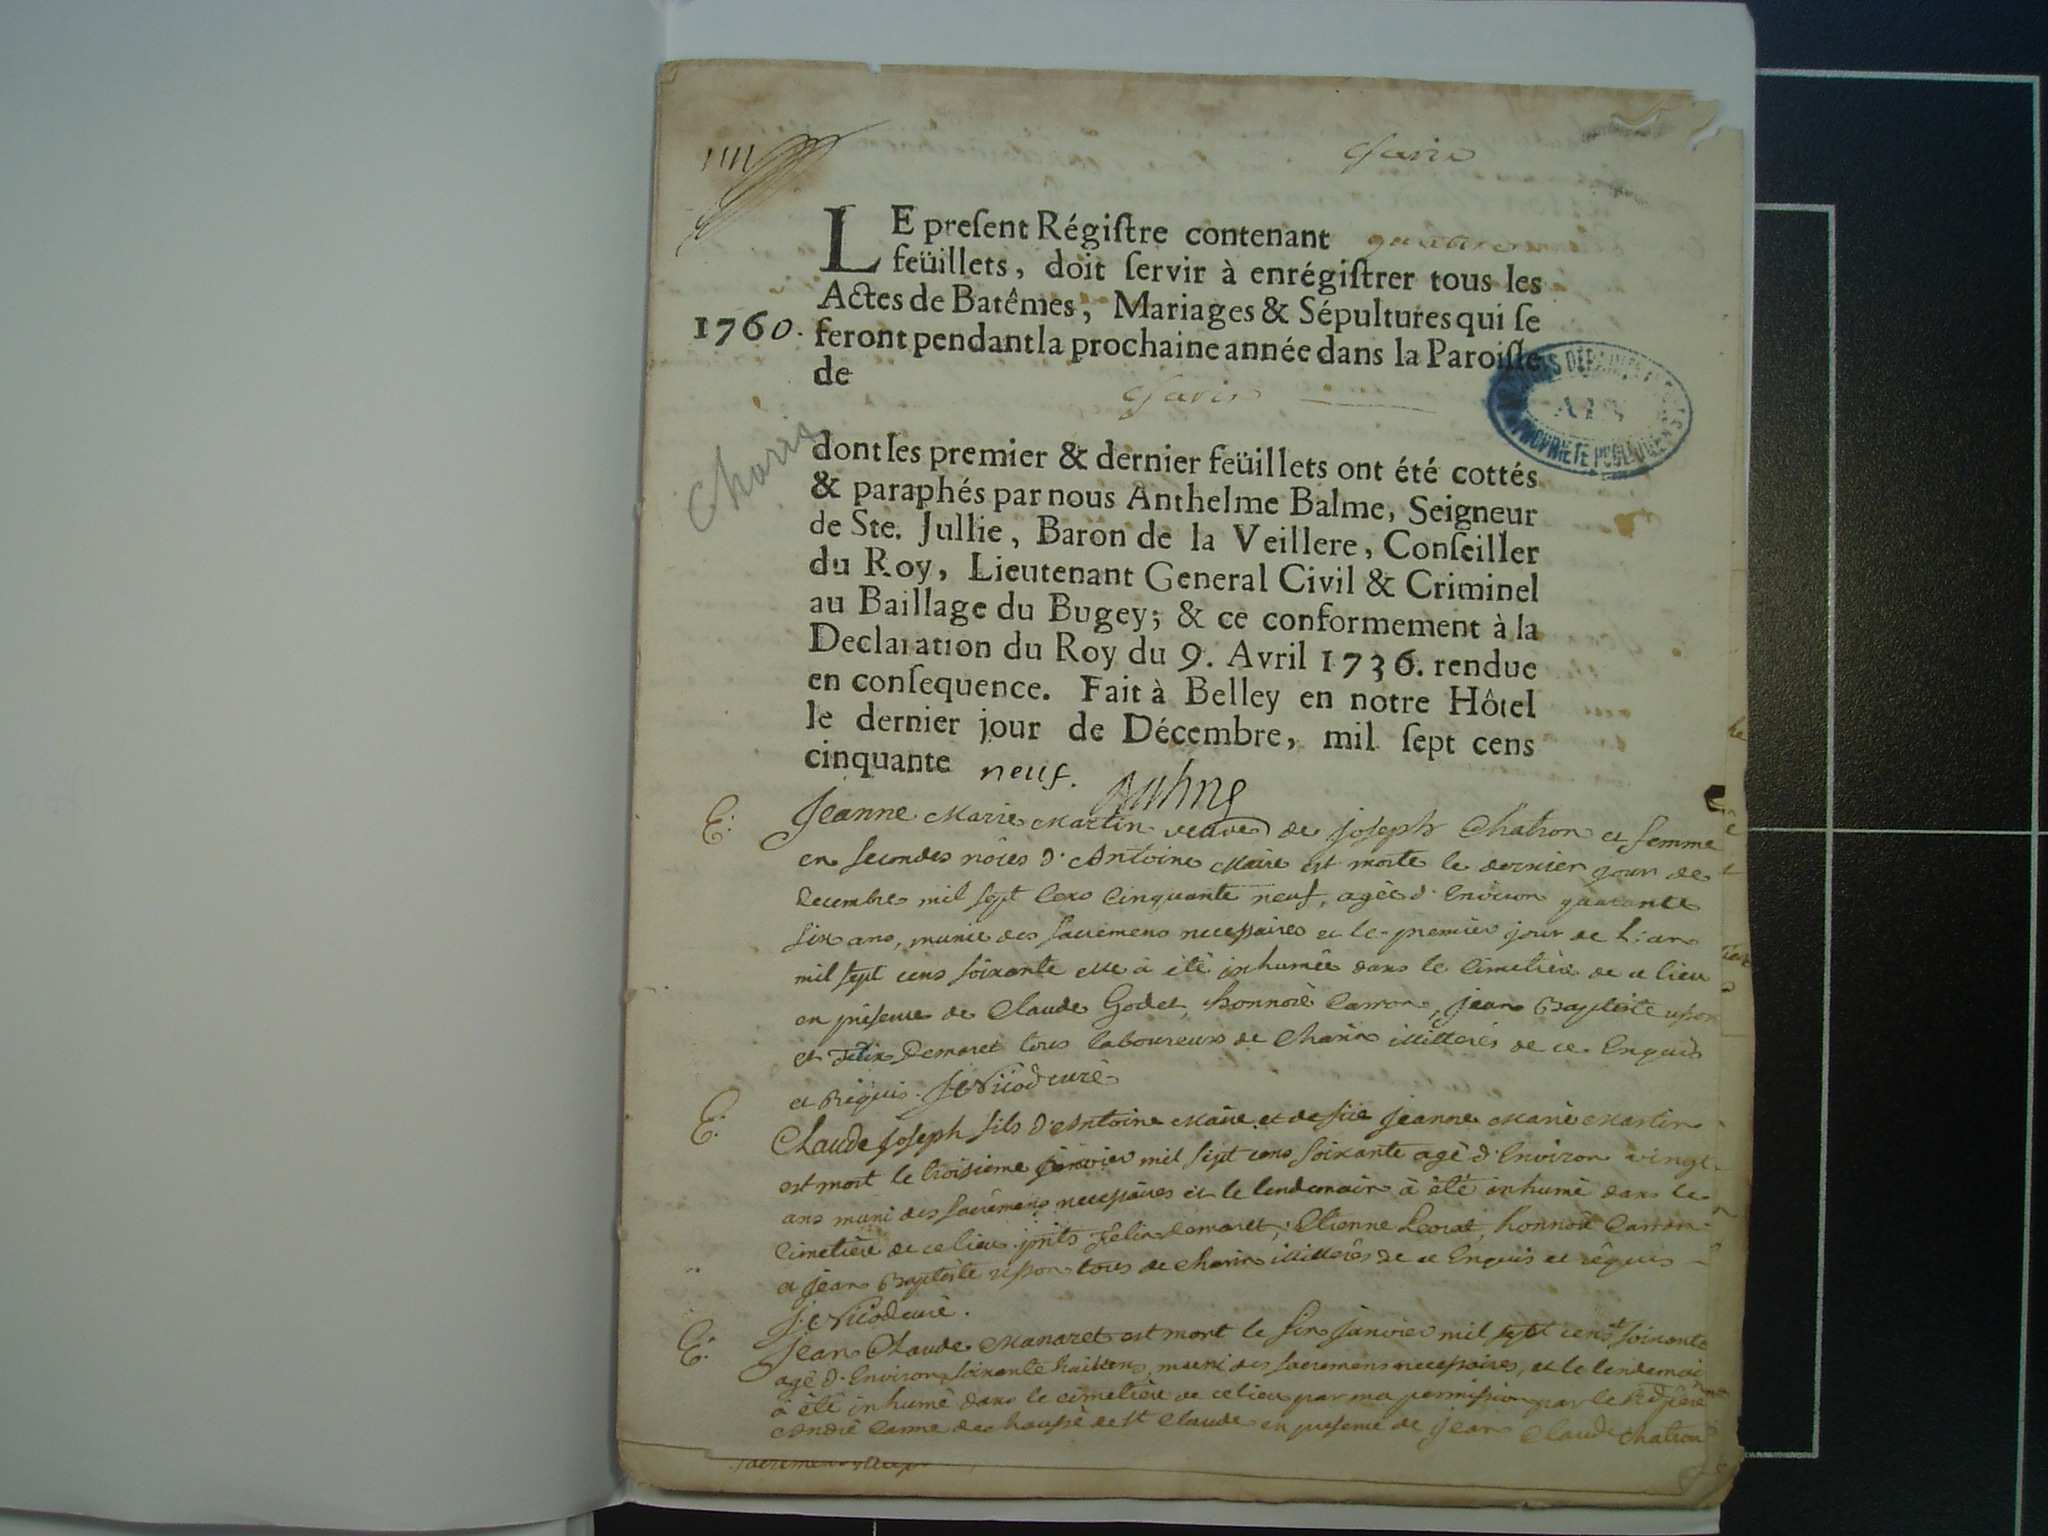 LE preſent Régiſtre contenant
feüillets, doit ſervir à enrégiſtrer tous les
Actes de Batêmes, Mariages & Sépultures qui ſe
1760. feront pendant la prochaine année dans la Paroiſſe
de
Charix
dont les premier & dernier feüillets ont été cottés
& paraphés par nous Anthelme Balme, Seigneur
de Ste. Jullie, Baron de la Veillere, Conſeiller
du Roy, Lieutenant General Civil & Criminel
au Baillage du Bugey; & ce conformement à la
Declaration du Roy du 9. Avril 1736. rendue
en conſequence. Fait à Belley en notre Hôtel
le dernier jour de Décembre, mil ſept cens
cinquante neuf.
E: Jeanne Marie Martin veuve de Joseph Chatron et femme
en secondes nôces d'Antoine Maire est morte le dernier jour de
Decembre mil sept cens cinquante neuf, agée d'Environ quarante
six ans, munie des sacremens necessaires et le premier jour de l'an
mil sept cens soixante elle à été inhumée dans le cimetière de ce lieu
en présence de Claude Godet, honnoré Carron, jean Baptiste
et Felix Demaret tous laboureurs de Charix illitterés de ce Enquis
et Réquis.
E: Claude Joseph fils d'Antoine Maire et de füe Jeanne Marie Martin
est mort le troisieme janvier mil sept cens soixante agé d'Environ vingt
ans muni des sacrémens necessaires et le lendemain à été inhumé dans le
Cimetière de ce lieu pnts Felix Demaret, Etienne honnoré Carron
et jean Baptiste tous de Charix illitterés de ce Enquis et réquis
E: Jean Claude Manaret est mort le six janvier mil sept cens soixante
agé d'Environ soixante huit ans, muni des sacremens necessaires, et le lendemain
à été inhumé dans le cimetière de ce lieu par ma permission par le
André Carme dechaussé de St Claude en presence de Jean Claude Chatron